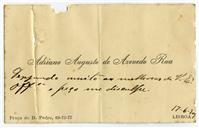 Adriano Augusto de Azevedo Rua
Fazendo muito as melhoras de V. Ex.
e peço me desculpe.
17-6-
Praça de D. Pedro,
LISBOA